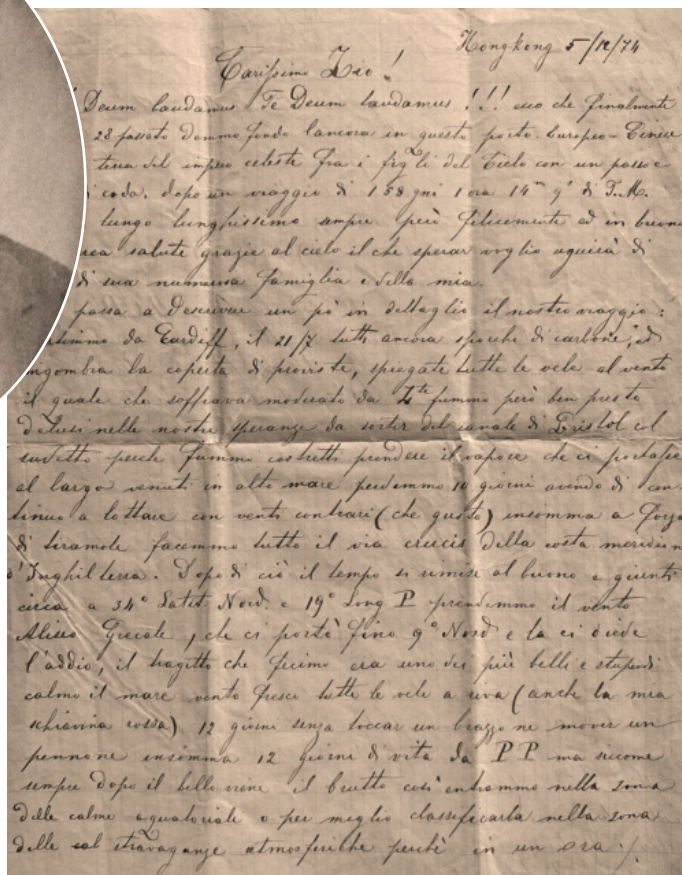 Hongkong 5/12/74
Carissimo Zio!
Deum laudamus Te Deum laudamus!!! ecco che finalmente
28 passato demmo fondo l'ancora in questo porto Europeo-Cinese
terra del impero celeste fra i figli del Cielo con un passo e
coda. Dopo un viaggio di 158 gni 1 ora 14m di T.M.
lungo lunghissimo sempre però felicemente ed in buona
salute grazie al cielo il che sperar voglio di
di sua numerosa famiglia e della mia.
passa a descriver un pò in dettaglio il nostro viaggio:
da Cardiff, il 21/7 tutti ancora sporchi di carbone, ed
ingombra la coperta di proviste, spiegate tutte le vele al vento
il quale che soffiava moderato da fummo però ben presto
delusi nelle nostre speranze da sortir del canale di Bristol col
sudetto perche fummo costretti prendere il vapore che ci portasse
al largo venuti in alto mare perdemmo 10 giorni avendo di con
tinuo a lottare con venti contrari (che gusto) insomma a forza
di tiramole facemmo tutto il via crucis della costa meridion
d'Inghilterra. Dopo di ciò il tempo si rimise al buono e giunti
circa a 34° Latit. Nord. e 19° Long P prendemmo il vento
Aliseo Grecale, che ci portò fino 9° Nord e la ci diede
l'addio, il tragitto che fecimo era uno dei più belli e stupendi
calmo il mare vento fresco tutte le vele a riva (anche la mia
schiavina rossa) 12 giorni senza toccar un brazzo ne mover un
pennone insomma 12 giorni di vita da PP ma siccome
sempre dopo il bello viene il brutto così entrammo nella zona
delle calme equatoriale o per meglio classificarla nella zona
delle stravaganze atmosferiche perchè in un ora ./.